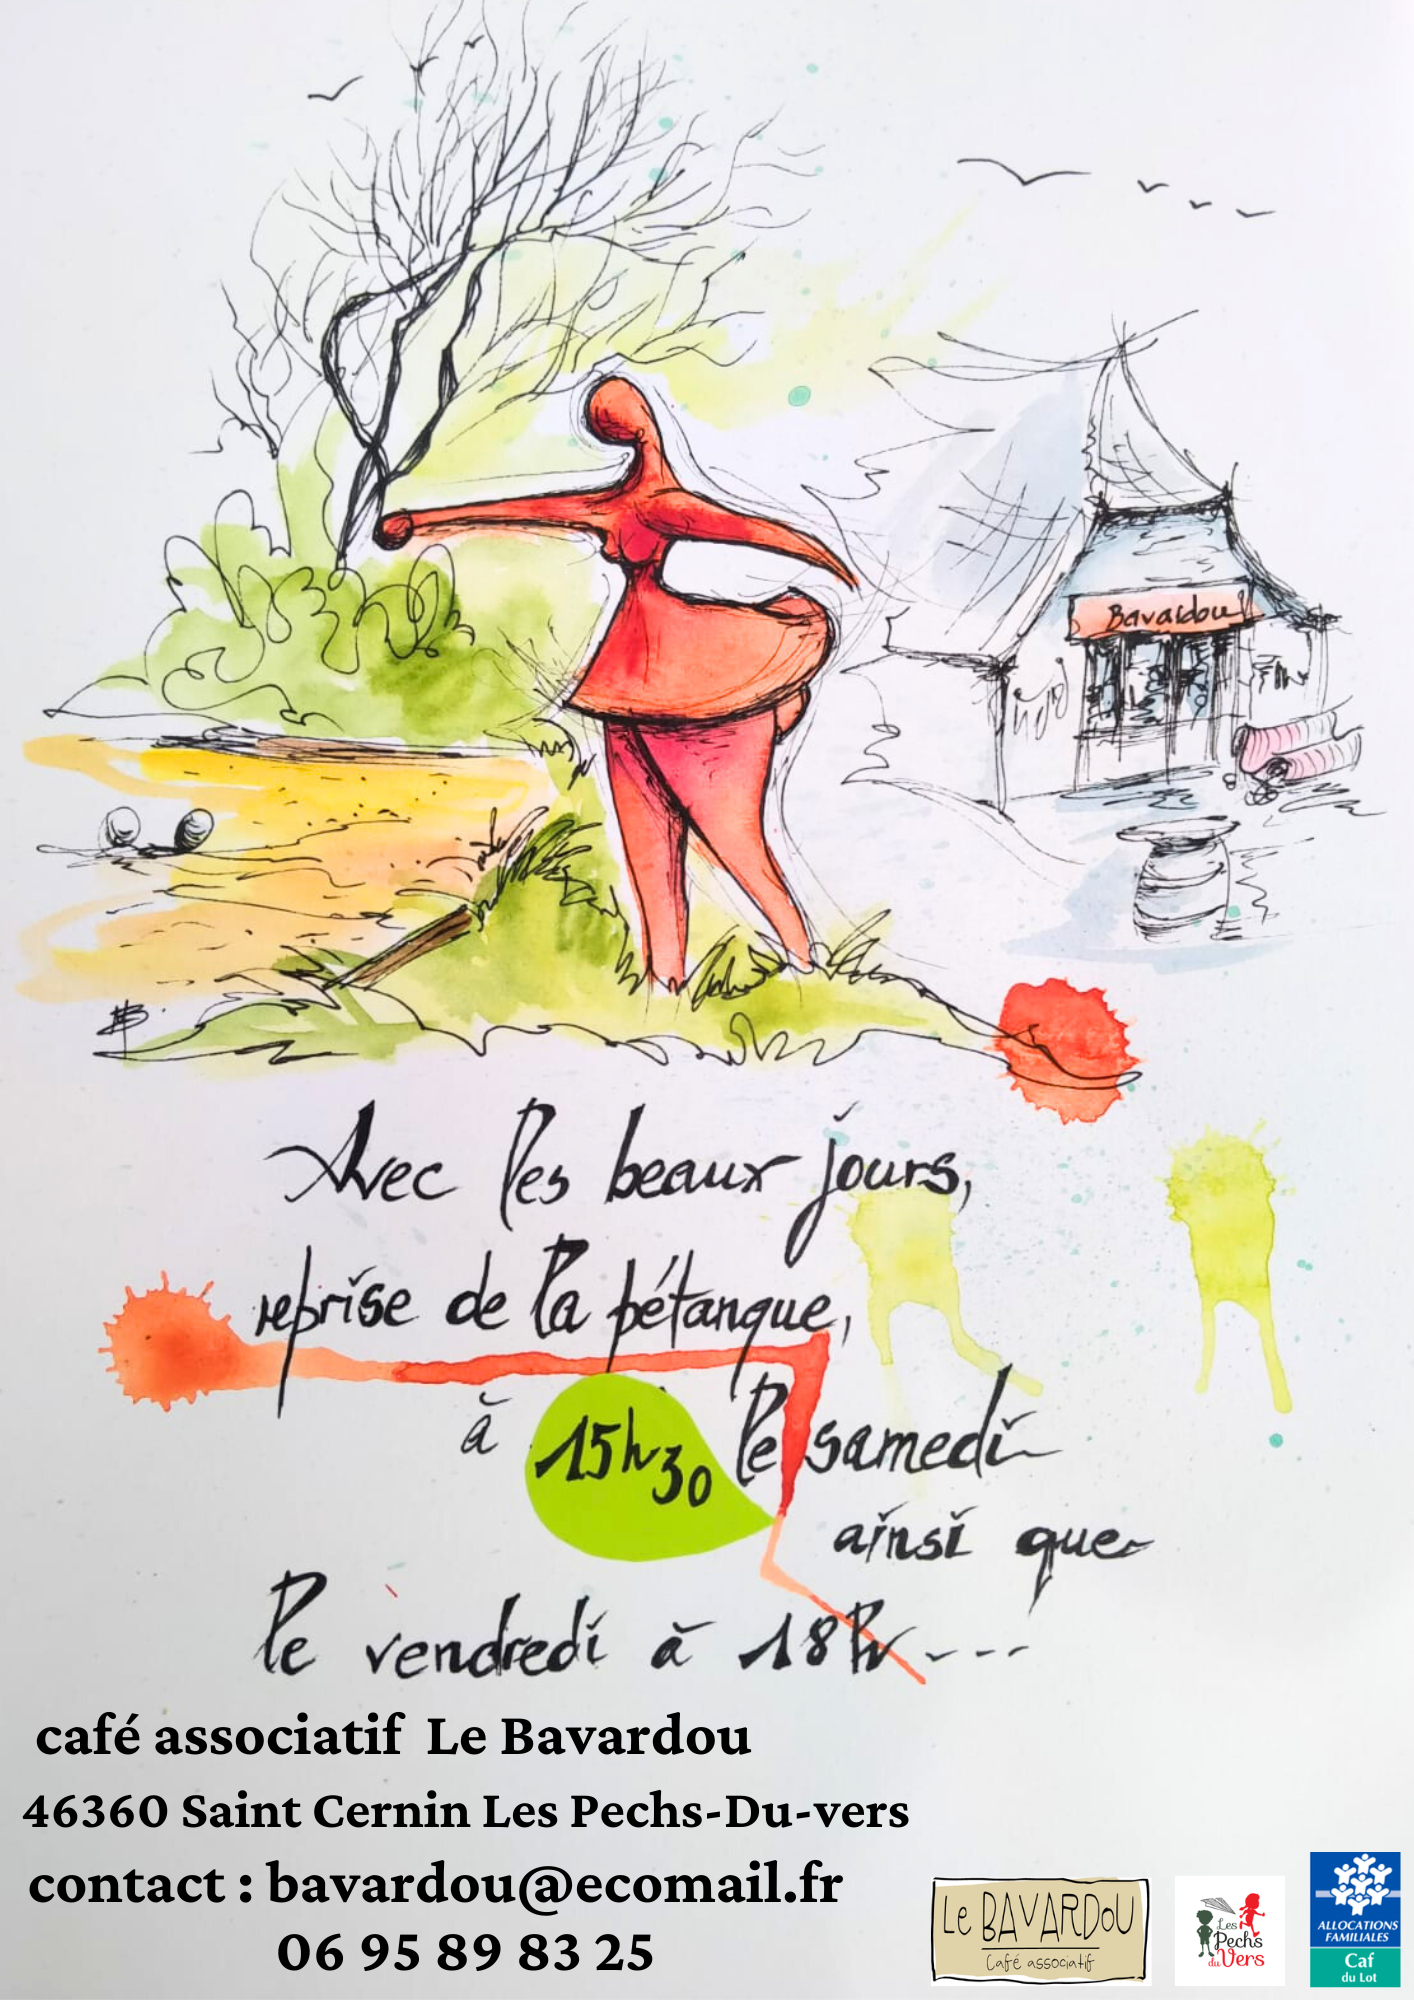 Bavardou
Avec les beaux jours,
reprise de la pétanque,
à 15h30 le samedi
ainsi que
le vendredi à 18h---
café associatif Le Bavardou
46360 Saint Cernin Les Pechs-Du-vers
contact : bavardou@ecomail.fr
06 95 89 83 25
Le BAVARDoU
Café associatif
Les
Pechs
du Vers
ALLOCATIONS
FAMILIALES
Caf
du Lot